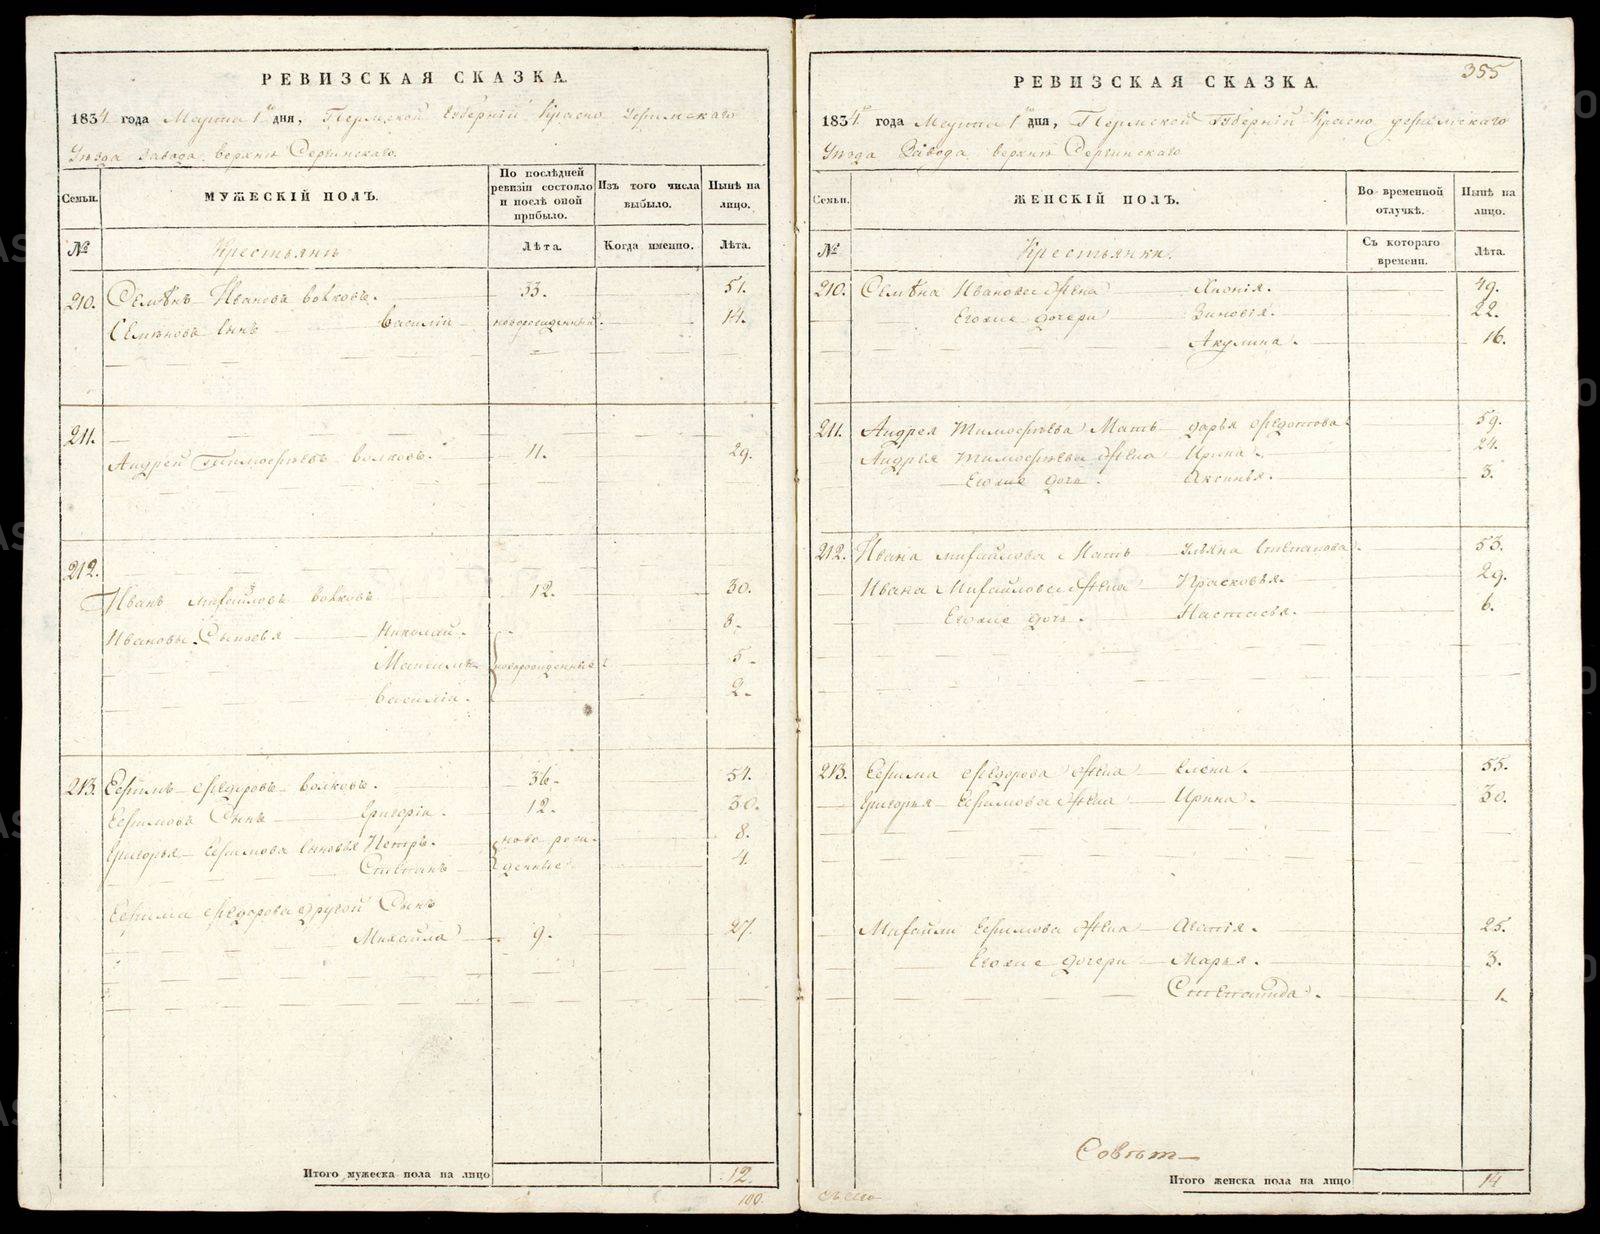 РЕВИЗСКАЯ СКАЗКА.
1834 года Марта 1 дня, Пермской Губерніи Красно Уфимскаго
Уѣзда Завода верхне Сергинскаго.
Семьи.
МУЖЕСКІЙ ПОЛЪ.
По послѣдней ревизіи состояло и послѣ оной прибыло.
Изъ того числа выбыло.
Нынѣ на лицо.
№
Крестьянѣ
Лѣта.
Когда именно.
Лѣта.
210. Семѣнъ Иванова волковъ. 33. 51.
Семѣновъ Сынъ Василій новорожденный. 14.
211.
Андрей Тимофѣевъ волковъ. 11. 29.
212.
Иванъ Михайловъ волковъ 12. 30.
Ивановы Сыновья Николай. 8.
Максимъ новорожденные 5.
Василій. 2.
213. Ефимъ Федоровъ волковъ. 36. 54.
Ефимовъ Сынъ Григорій. 12. 30.
Григорья Ефимова сыновья Петръ. ново рож- 8.
Степанъ денные 4.
Ефима Федорова другой Сынъ
Михайла 9. 27.
Итого мужеска пола на лицо 12.
100.
355
РЕВИЗСКАЯ СКАЗКА.
1834 года Марта 1 дня, Пермской Губерніи Красно уфимскаго
Уѣзда Завода верхне Сергинскаго
Семьи.
ЖЕНСКІЙ ПОЛЪ.
Во временной отлучкѣ.
Нынѣ на лицо.
№
Крестьянки.
Съ котораго времени.
Лѣта.
210. Семѣна Иванова жена Хіонія. 49.
Егоже дочери Зиновія. 22.
Акулина. 16.
211. Андрея Тимофѣева Мать дарья Федотова 59.
Андрея Тимофѣева жена Ирина. 24.
Егоже дочь. Аксинья. 3.
212. Ивана Михайлова Мать Ульяна Степанова. 53.
Ивана Михайлова жена Прасковья. 29.
Егоже дочь. Настасья. 6.
213. Ефима Федорова жена Елена. 55.
Григорья Ефимова жена Ирина. 30.
Михайлы Ефимова жена Агапія. 25.
Егоже дочери Марья. 3.
Степанида. 1.
Совѣт
Итого женска пола на лицо 14